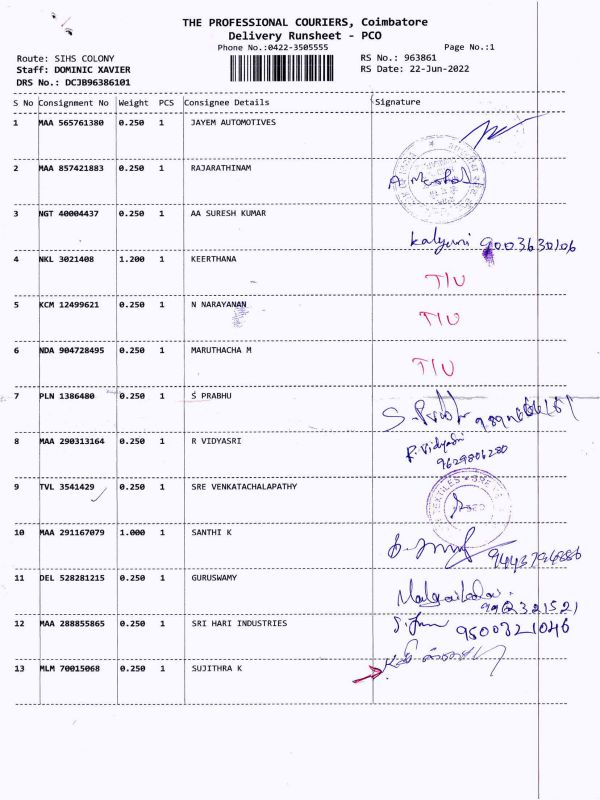 THE PROFESSIONAL COURIERS, Coimbatore
Delivery Runsheet - PCO
Phone No.:0422-3505555
Page No.:1
Route: SIHS COLONY
RS No.: 963861
Staff: DOMINIC XAVIER
RS Date: 22-Jun-2022
DRS No.: DCJB96386101
S No Consignment No Weight PCS Consignee Details Signature
1 MAA 565761380 0.250 1 JAYEM AUTOMOTIVES
2 MAA 857421883 0.250 1 RAJARATHINAM
3 NGT 40004437 0.250 1 AA SURESH KUMAR
Kalyani 9003630106
4 NKL 3021408 1.200 1 KEERTHANA
T/U
5 KCM 12499621 0.250 1 N NARAYANAN
T/U
6 NDA 904728495 0.250 1 MARUTHACHA M
T/U
7 PLN 1386480 0.250 1 S PRABHU
8 MAA 290313164 0.250 1 R VIDYASRI
R. Vidyasri
9629806280
9 TVL 3541429 0.250 1 SRE VENKATACHALAPATHY
TEXTILES
10 MAA 291167079 1.000 1 SANTHI K
9443794886
11 DEL 528281215 0.250 1 GURUSWAMY
9962321521
12 MAA 288855865 0.250 1 SRI HARI INDUSTRIES
9500321046
13 MLM 70015068 0.250 1 SUJITHRA K